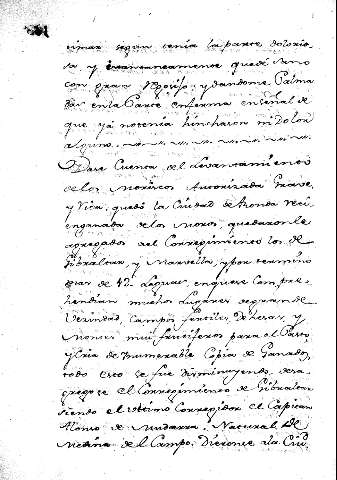 cimar segun tenia la parte dolorio
sa y instantaneamente quedé sano
con gran reposiso y dandome Palma
das en la Parte enferma en señal de
que yá no tenia hinchazon ni Dolor
alguno.
Dare Cuenta del Levantamiento
de los Moriscos Autorizada Grave,
y Vica, quedó la Ciudad de Ronda
engranada de los Moros, quedaronle
agregados a el Corregimiento los de
Gibraltar, y Marvella, y por termino
de 42 Leguas, en que se Compre
hendian muchos Lugares de grande
Vezindad, Campos fertiles, Dehesas, y
Montes mui fructiferos para el Pasto
y Cria de Inumerable Copia de Ganados,
todo esto se fue disminuyendo, desa
gregose el Corregimiento de Gibraltar
siendo el ultimo Corregidor el Capitan
Alonso de Mudarra, Natural de
Medina de el Campo, Dieronse a la Ciud